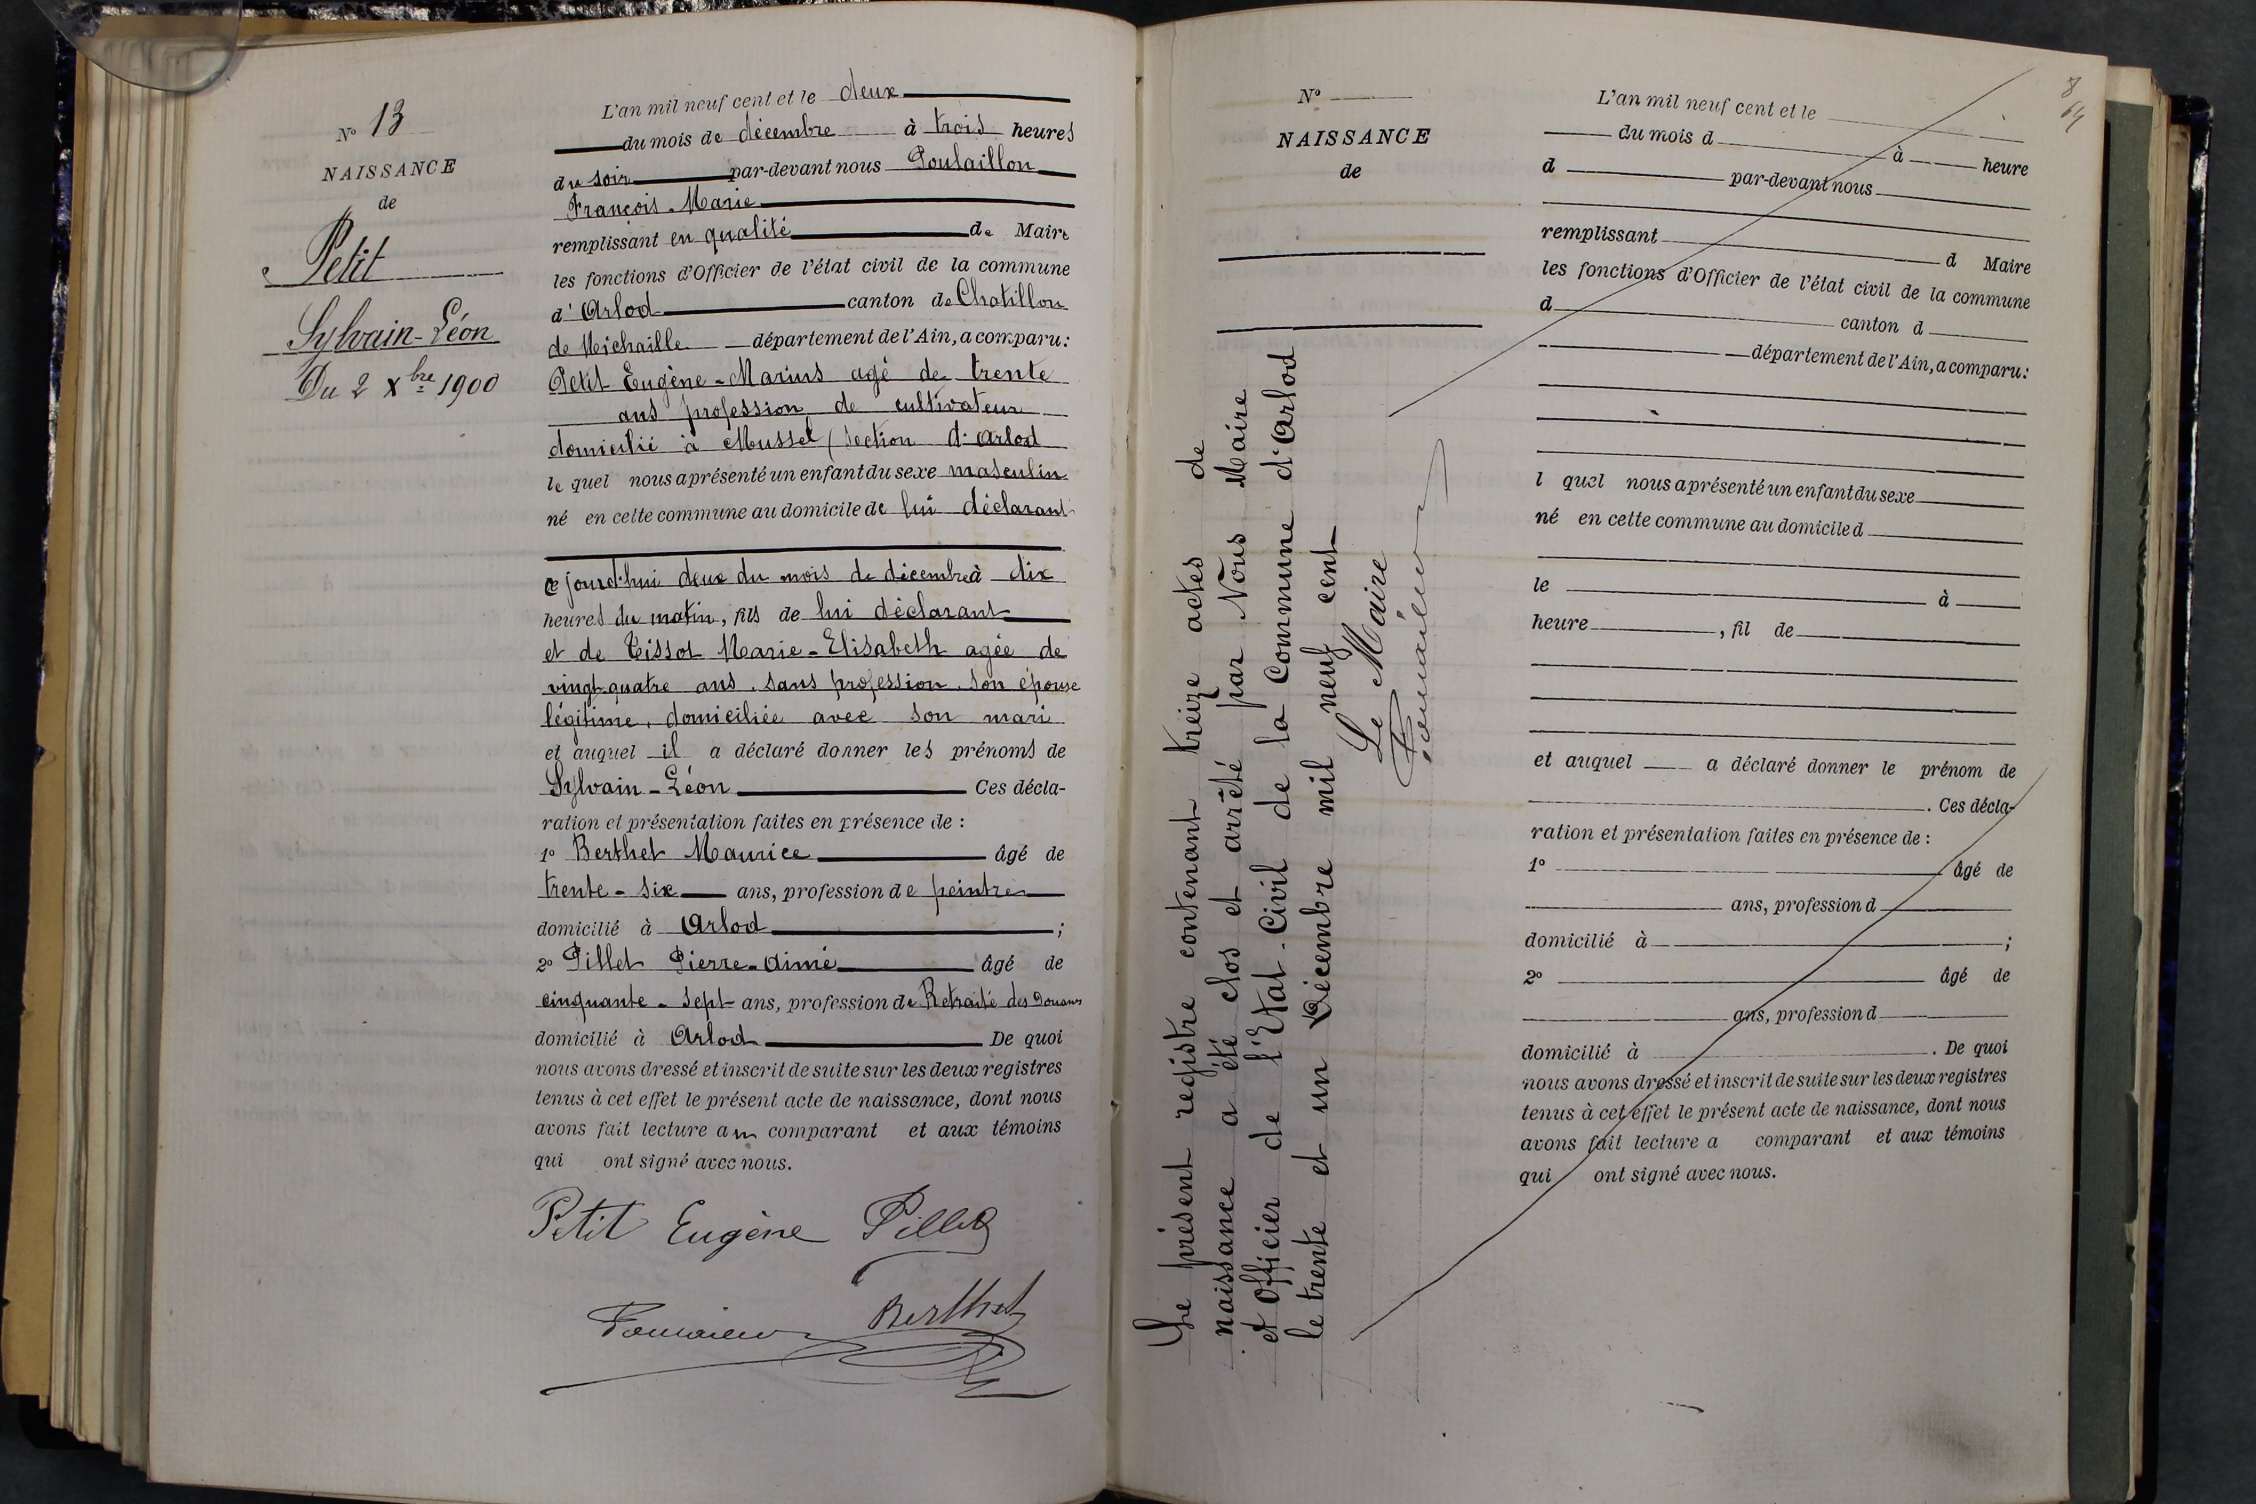 N° 13
NAISSANCE
de
Petit
Sylvain-Léon
Du 2 Xbre 1900
L'an mil neuf cent et le deux
du mois de décembre à trois heures
du soir par-devant nous Poulaillon
François-Marie
remplissant en qualité de Maire
les fonctions d'Officier de l'état civil de la commune
d'Arlod canton de Chatillon
de Michaille département de l'Ain, a comparu:
Petit Eugène-Marius agé de trente
ans profession de cultivateur
domicilié à Mussel (section d'Arlod
le quel nous a présenté un enfant du sexe masculin
né en cette commune au domicile de lui déclarant
ce jourd'hui deux du mois de décembre à dix
heures du matin, fils de lui déclarant
et de Tissot Marie-Elisabeth agée de
vingt-quatre ans, sans profession, son épouse
légitime, domiciliée avec son mari
et auquel il a déclaré donner les prénoms de
Sylvain-Léon Ces décla-
ration et présentation faites en présence de :
1° Berthet Maurice âgé de
trente-six ans, profession de peintre
domicilié à Arlod ;
2° Pillet Pierre-Aimé âgé de
cinquante-sept ans, profession de Retraité des Douanes
domicilié à Arlod De quoi
nous avons dressé et inscrit de suite sur les deux registres
tenus à cet effet le présent acte de naissance, dont nous
avons fait lecture au comparant et aux témoins
qui ont signé avec nous.
Petit Eugène Pillet
Berthet
8
64
N°
NAISSANCE
de
Le présent registre contenant treize actes de
naissance a été clos et arrêté par Nous Maire
et Officier de l'Etat-Civil de la Commune d'Arlod
le trente et un Décembre mil neuf cent
Le Maire
L'an mil neuf cent et le
du mois d à heure
d par-devant nous
remplissant d Maire
les fonctions d'Officier de l'état civil de la commune
d canton d
département de l'Ain, a comparu:
l quel nous a présenté un enfant du sexe
né en cette commune au domicile d
le à
heure , fil de
et auquel a déclaré donner le prénom de
. Ces décla-
ration et présentation faites en présence de :
1° âgé de
ans, profession d
domicilié à ;
2° âgé de
ans, profession d
domicilié à . De quoi
nous avons dressé et inscrit de suite sur les deux registres
tenus à cet effet le présent acte de naissance, dont nous
avons fait lecture a comparant et aux témoins
qui ont signé avec nous.